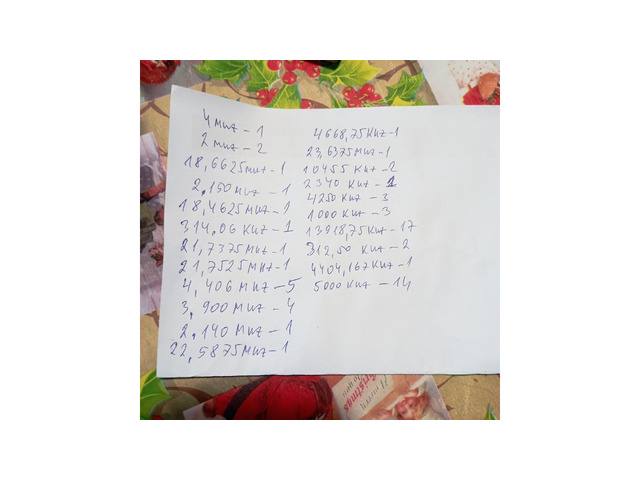 4 MHz - 1
2 MHz - 2
18,6625 MHz - 1
2,150 MHz - 1
18,4625 MHz - 1
314,06 KHz - 1
21,7375 MHz - 1
21,7525 MHz - 1
4,406 MHz - 5
3,900 MHz - 4
2,140 MHz - 1
22,5875 MHz - 1
4668,75 KHz - 1
23,6375 MHz - 1
10455 KHz - 2
2340 KHz - 1
4250 KHz - 3
1000 KHz - 3
13918,75 KHz - 17
312,50 KHz - 2
4404,167 KHz - 1
5000 KHz - 14
Christmas